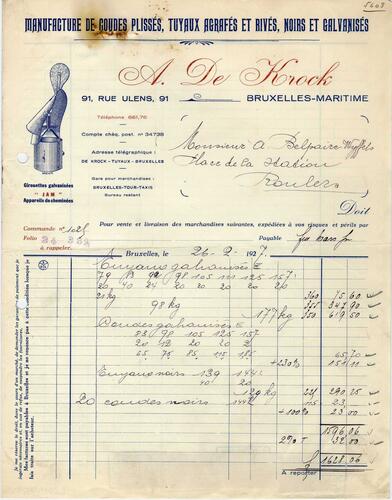 MANUFACTURE DE COUDES PLISSÉS, TUYAUX AGRAFÉS ET RIVÉS, NOIRS ET GALVANISÉS
A. De Krock
91, RUE ULENS, 91
BRUXELLES-MARITIME
Téléphone 661,76
Compte chèq. post. nº 34738
Adresse télégraphique :
DE KROCK - TUYAUX - BRUXELLES
Gare pour marchandises :
BRUXELLES-TOUR-TAXIS
Bureau restant
Girouettes galvanisées
"JAM"
Appareils de cheminées
Monsieur A Belpaire
Place de la Station
Roulers
Doit
Commande nº 1028
Folio
à rappeler.
Pour vente et livraison des marchandises suivantes, expédiées à vos risques et périls par
Payable
Bruxelles, 26-2-1927.
Tuyaux galvanisés
79 83 92 98 105 111 125 157
20 40 24 20 20 20 20 20
20kg 360 75.60
98kg 347.90
177kg 350 619.50
Coudes galvanisés
83 98 105 125 157
20 12 20 20 2
65 75 85 115 185 65.70
+230% 151.11
Tuyaux noirs 139 144
40 20
129kg 225 290.25
20 coudes noirs 144 115 23.
+100% 23.00
1596.06
2% T 32.00
1628.06
A reporter